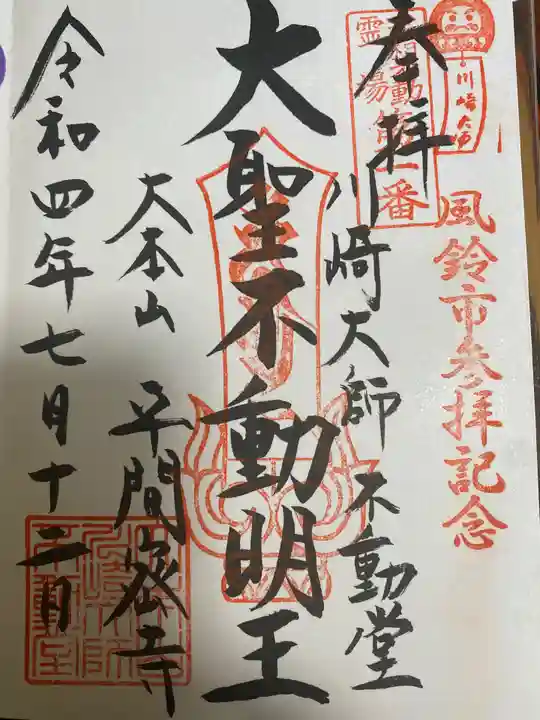 川崎大師
風鈴市参拝記念
奉拝
霊場第一番
川崎大師 不動堂
大聖不動明王
大本山 平間寺
令和四年七月十二日